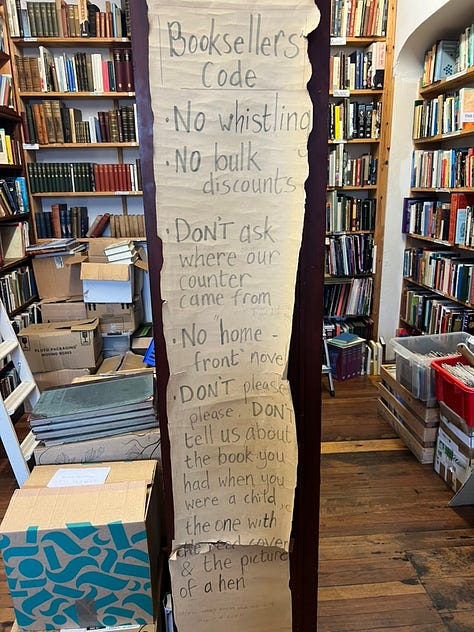 Booksellers'
Code
· No whistling
· No bulk
discounts
· DON'T ask
where our
counter
came from
· No "home-
front" nove
· DON'T please
please. DON'T
tell us about
the book you
had when you
were a child
the one with
the red cover
& the picture
of a hen